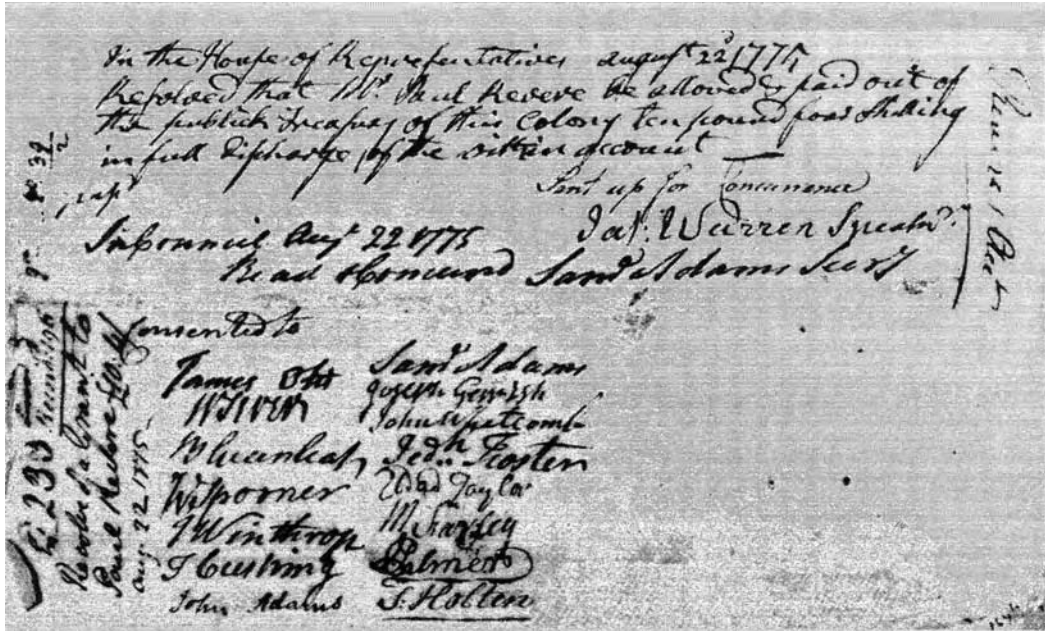 In the House of Representatives august 22d 1775
Resolved that Mr Paul Revere be allowed & paid out of
the publick treasury of this Colony ten pound four Shilling
in full discharge of the within account
Sent up for Concurrence
Jas. Warren Speakr.
In Council Augt 22 1775
Read & Concurd Saml Adams Secry
Consented to
James Otis
W Sever
B Greenleaf
W Spooner
J Winthrop
T Cushing
John Adams
Saml Adams
Joseph Gerrish
John Whetcomb
Jedh Foster
Eldad Taylor
M Farley
J Palmer
S. Holten
Resolve for a Grant to
Paul Revere £10.4/
Aug. 22 1775